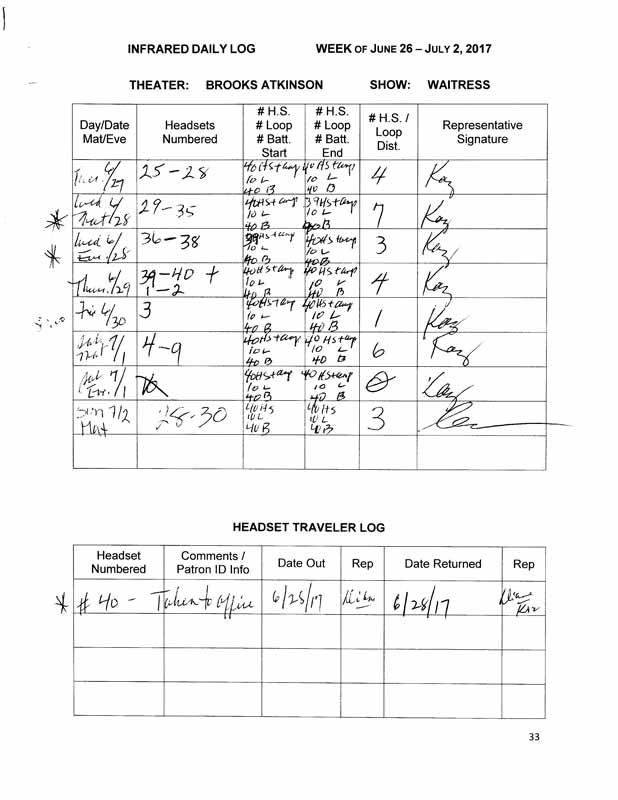 INFRARED DAILY LOG WEEK OF JUNE 26 – JULY 2, 2017
THEATER: BROOKS ATKINSON SHOW: WAITRESS
Day/Date Mat/Eve Headsets Numbered # H.S. # Loop # Batt. Start # H.S. # Loop # Batt. End # H.S. / Loop Dist. Representative Signature
6/27 25-28 40 HS + amp 10 L 40 B 40 HS + amp 10 L 40 B 4 Kaz
Wed 6/28 Mat 29-35 40HS + amp 10 L 40 B 39 HS + amp 10 L 40 B 7 Kaz
Wed 6/28 Eve 36-38 39HS + amp 10 L 40 B 40HS + amp 10 L 40 B 3 Kaz
Thur. 6/29 39-40 + 1-2 40HS + amp 10 L 40 B 40 HS + amp 10 L 40 B 4 Kaz
Fri 6/30 3 40HS + amp 10 L 40 B 40HS + amp 10 L 40 B 1 Kaz
7/1 Mat 4-9 40HS + amp 10 L 40 B 40 HS + amp 10 L 40 B 6 Kaz
Sat 7/1 Eve. 40HS + amp 10 L 40 B 40 HS + amp 10 L 40 B Kaz
Sun 7/2 Mat 28-30 40HS 10 L 40 B 40HS 10 L 40 B 3
HEADSET TRAVELER LOG
Headset Numbered Comments / Patron ID Info Date Out Rep Date Returned Rep
# 40 - Taken to office 6/28/17 6/28/17 Diane Kaz
33